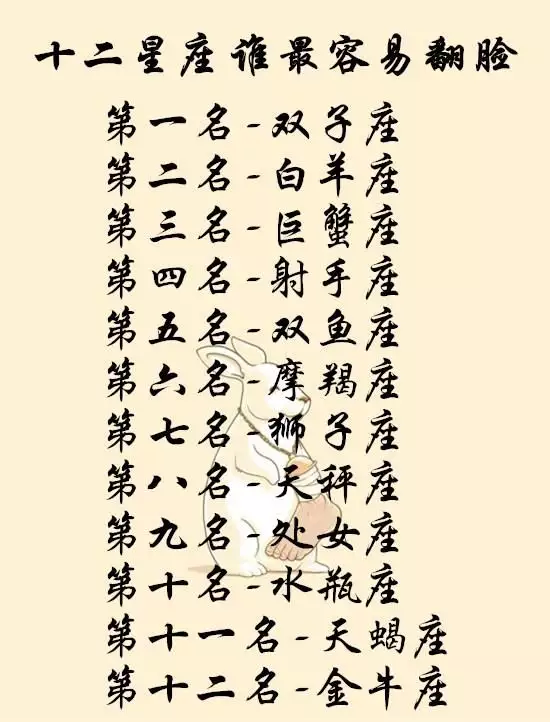 十二星座谁最容易翻脸
第一名-双子座
第二名-白羊座
第三名-巨蟹座
第四名-射手座
第五名-双鱼座
第六名-摩羯座
第七名-狮子座
第八名-天秤座
第九名-处女座
第十名-水瓶座
第十一名-天蝎座
第十二名-金牛座